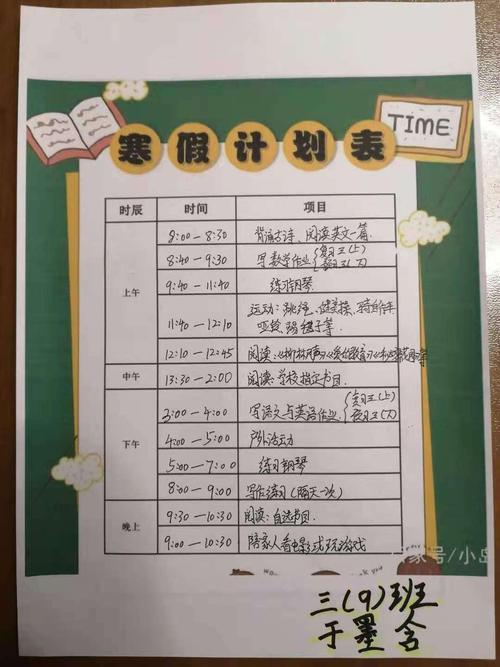 TIME
寒假计划表
时辰 时间 项目
上午
8:00—8:30 背诵古诗、阅读英文一篇.
8:40—9:30 写数学作业{复习三(上) 预习三(下)
9:40—11:40 练习钢琴
11:40—12:10 运动:跳绳、健美操、骑自行车 哑铃、踢毽子等.
12:10—12:45 阅读:《柳林风声》《爱的教育》等
中午
13:30—2:00 阅读:学校指定书目.
下午
2:00—4:00 写语文与英语作业{复习三(上) 预习三(下)
4:00—5:00 户外活动
5:00—7:00 练习钢琴
8:00—9:00 写作练习(两天一次)
晚上
9:30—10:30 阅读:自选书目.
9:00—10:30 陪家人看电影或玩游戏
家号/小岛
三(9)班
于墨含